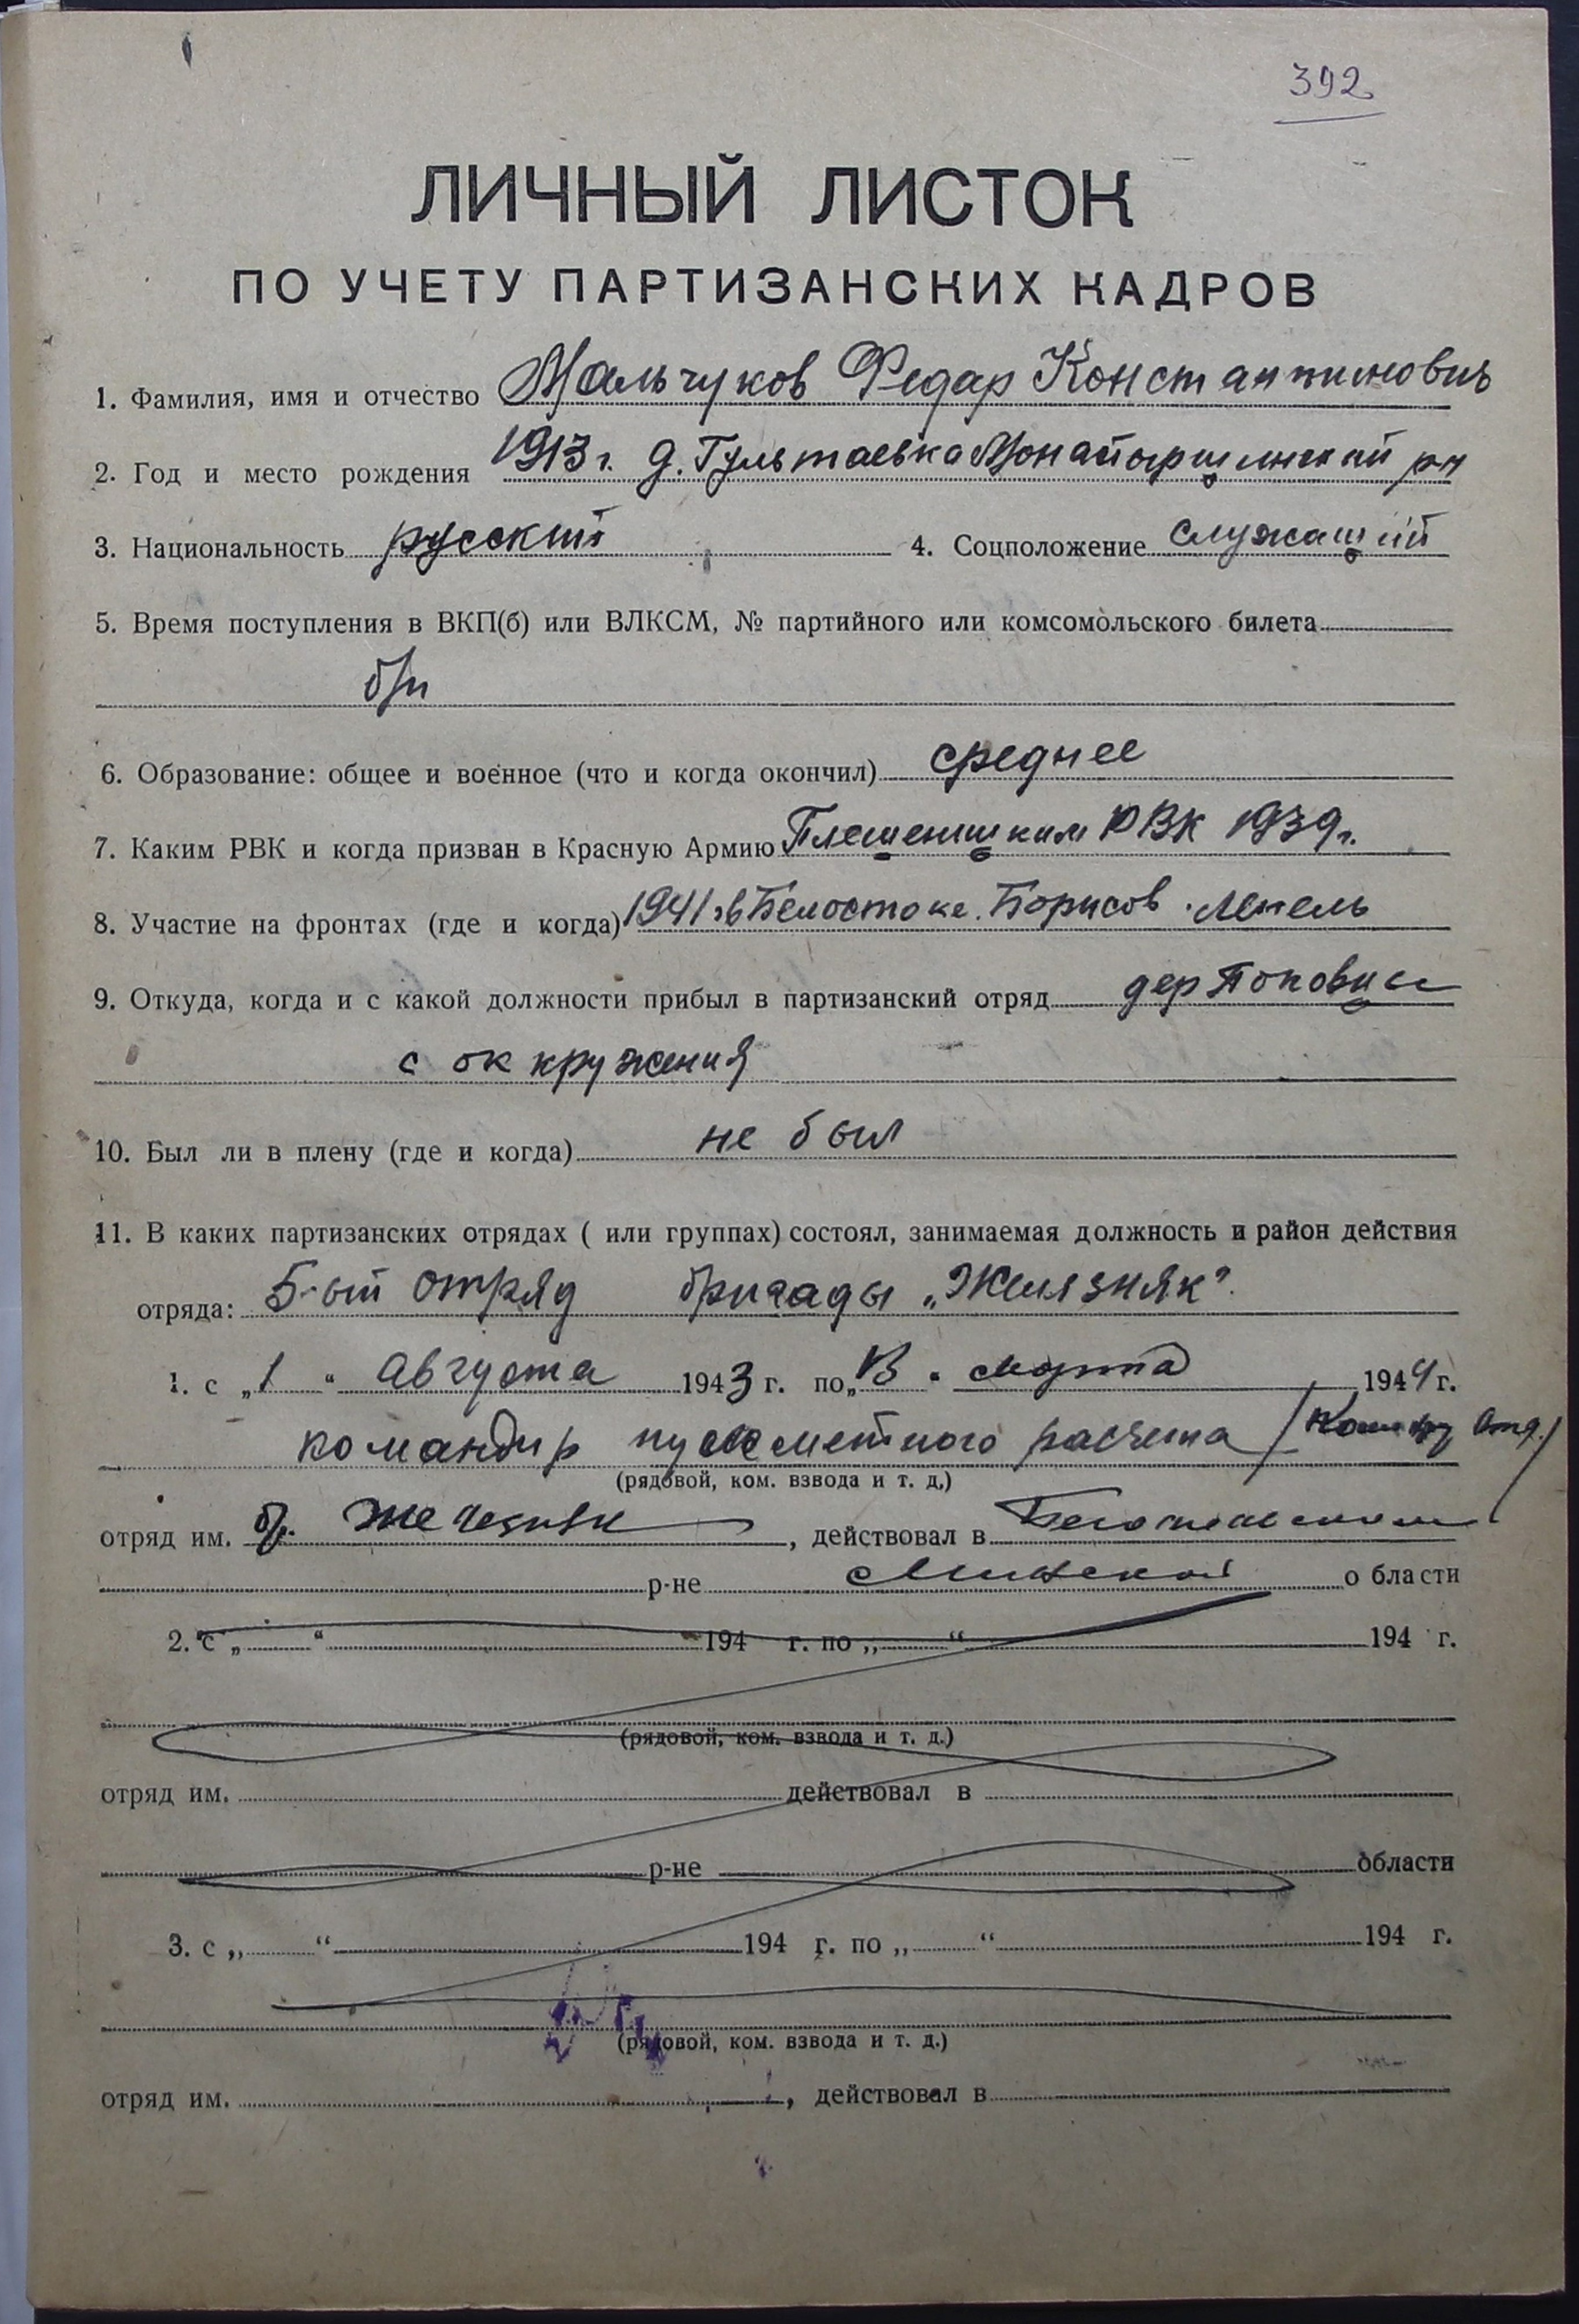 392
ЛИЧНЫЙ ЛИСТОК
ПО УЧЕТУ ПАРТИЗАНСКИХ КАДРОВ
1. Фамилия, имя и отчество Мальчуков Федар Константинович
2. Год и место рождения 1913 г. д. Гультаевка Монастырщинский р-н
3. Национальность русский 4. Соцположение служащий
5. Время поступления в ВКП(б) или ВЛКСМ, № партийного или комсомольского билета
б/п
6. Образование: общее и военное (что и когда окончил) среднее
7. Каким РВК и когда призван в Красную Армию Плешеницким РВК 1939 г.
8. Участие на фронтах (где и когда) 1941 г в Белостоке. Борисов. Лепель
9. Откуда, когда и с какой должности прибыл в партизанский отряд дер
с ок кружения
10. Был ли в плену (где и когда) не был
11. В каких партизанских отрядах ( или группах) состоял, занимаемая должность и район действия
отряда: 5-ый отряд бригады „Железняк"
1. с „1" Августа 1943 г. по „ " марта 1944 г.
командир пулеметного расчета
(рядовой, ком. взвода и т. д.)
отряд им. бр. Железняк, действовал в Бегомльском
р-не Минской области
2. с „ " 194 г. по „ " 194 г.
(рядовой, ком. взвода и т. д.)
отряд им. действовал в
р-не области
3. с „ " 194 г. по „ " 194 г.
(рядовой, ком. взвода и т. д.)
отряд им. , действовал в